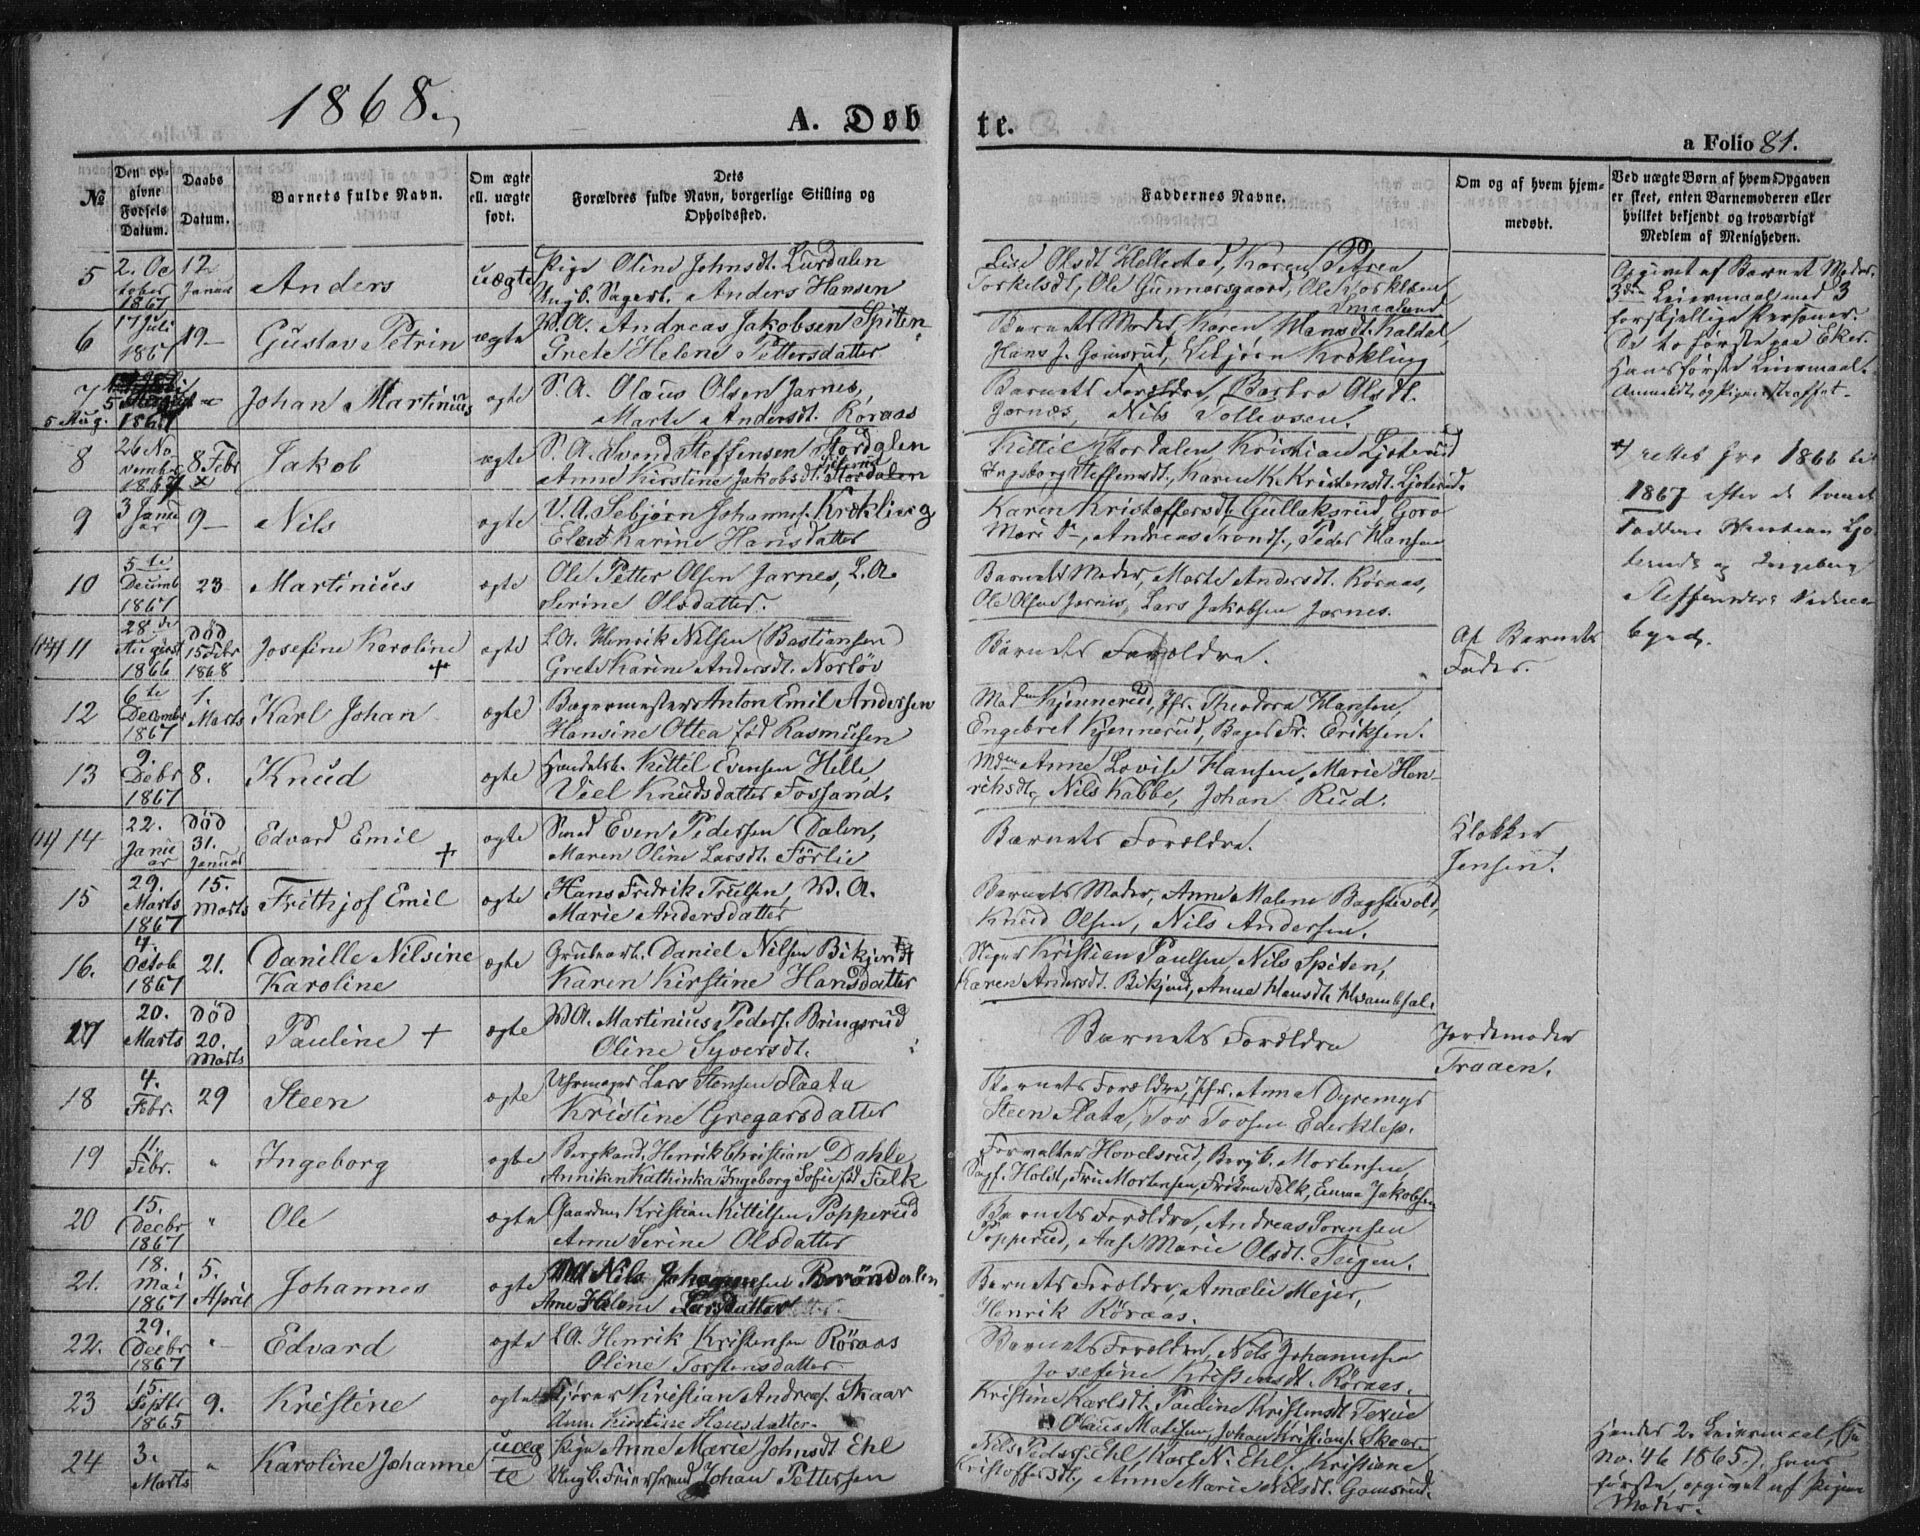 1868.
A. Døb
te.
a Folio 81.
№
Den opgivne Fødsels Datum.
Daabs Datum.
Barnets fulde Navn.
Om ægte ell. uægte født.
Dets Forældres fulde Navn, borgerlige Stilling og Opholdsted.
Faddernes Navne.
Om og af hvem hjemmedøbt.
Ved uægte Børn af hvem Opgaven er skeet, enten Barnemoderen eller hvilket bekjendt og troværdigt Medlem af Menigheden.
5 2. October 1867 12 Januar Anders uægte Pige Oline Johnsdt. Lurdalen
Ungk. Anders Hansen
Lise Olsdt Hellestad, Karen Petrea
Torkelsdt, Ole Gunnarsgaard, Ole Torkelsen Smaalund
Opgivet af Barnets Moder.
3die Leiermaal med 3
forskjellige Personer.
De to første paa Eker.
Hans første Leiermaal.
6 17 Juli 1867 19 Gustav Petrin ægte A. Andreas Jakobsen Spiten
Grete Helene Pettersdatter
Barnets Moder, Karen Hansdt. Kaldal,
Hans J. Gomsrud, Sebjørn Krekling
7 5 Aug. 1867 Johan Martinius ægte S. A. Olaus Olsen Jarnes,
Marte Andersdt. Röraas
Barnets Forældre, Barbro Olsdt.
Jarnæs, Nils Tollevsen.
8 26 November 1867 8 Febr x Jakob ægte S. A. Svend Steffensen Stordalen
Anne Kirstine Jakobsdt. Stordalen
Kittil Stordalen, Kristian Ljoterud
Ingeborg Steffensdt., Karen K. Kristensdt. Ljoterud.
x) rettet fra 1868 til
1867 efter
Ingeborg
9 3 Januar 9 Nils ægte V. A. Sebjørn Johannes. Krekling
Karine Hansdatter
Karen Kristoffersdt. Gulliksrud, Goro
Mari D–, Andreas Tronds., Peder Hansen
10 5te Decemb 1867 23 Martinius ægte Ole Petter Olsen Jarnes, L. A.
Serine Olsdatter.
Barnets Moder, Marte Andersdt. Röraas,
Ole Olsen Jarnes, Lars Jakobsen Jarnes.
11 28de August 1866 Död 15 Febr 1868 Josefine Karoline + ægte L. A. Henrik Nilsen (Bastiansen)
Grete Karine Andersdt. Norlöv
Barnets Forældre.
Af Barnets
Fader.
12 6te Decembr 1867 1. Marts Karl Johan ægte Bagermester Anton Emil Andersen
Hansine Ottea fød Rasmusen
Madm Kjennerud, Jfr. Theodora Hansen,
Engebret Kjennerud, Bager Fr. Eriksen.
13 9. Debr 1867 8. Knud ægte Handelsb. Kittil Evensen Helle,
Viel Knudsdatter Fossand.
Mdm Anne Lovise Hansen, Marie Hen-
richsdt, Nils Kabbe, Johan Rud.
14 22. Januar Död 31. Januar Edvard Emil + ægte Smed Even Pedersen Dalen,
Maren Oline Larsdt. Förlie
Barnets Forældre.
Klokker
Jensen.
15 29. Marts 1867 15. Marts Frithjof Emil ægte Hans Fredrik Trulsen, A.
Marie Andersdatter
Barnets Moder, Anne Malene Bagstevold,
Knud Olsen, Nils Andersen.
16. 4. Octob 1867 21. Danille Nilsine
Karoline ægte Grubearb. Daniel Nilsen Bikjerud
Karen Kirstine Hansdatter
Kristian Paulsen, Nils Spiten,
Karen Andersdt. Bikjerud, Anne Hansdt. Hvambsal.
17 20. Marts Död 20. Marts Pauline + ægte A. Martinius Peders. Bringsrud
Oline Syversdt.
Barnets Forældre
Jordemoder
Traaen.
18 4. Febr. 29 Steen ægte Uhrmager Lars Stensen Flaata
Kristine Gregarsdatter
Barnets Forældre, Jfr. Anna Dyremyr
Steen Flata, Tov Tovsen Ederklep.
19 11. Febr. " Ingeborg ægte Bergkand. Henrik Christian Dahle
Anniken Kathinka Ingeborg Sofie fød Falk
Forvalter Hovelsrud, Bergk. Mortensen,
Sagf. Holdt, Fru Mortensen, Frøken Falk, Emma Jakobsen
20 15. Decbr 1867 " Ole ægte Gaardm. Kristian Kittilsen Popperud
Anne Serine Olsdatter
Barnets Forældre, Andreas Sorensen
Popperud, Aase Marie Olsdt. Teigen.
21. 18. Mai 1867 5. April Johannes ægte Nils Johannesen Bröndalen
Ane Helene Larsdatter
Barnets Forældre, Amalie Mejer,
Henrik Röraas.
22. 29. Decbr 1867 " Edvard ægte L. A. Henrik Kristensen Röraas
Oline Torstensdatter
Barnets Forældre, Nils Johannesen
Josefine Kristensdt. Röraas.
23 15. Septbr 1865 9. Kristine ægte Kjører Kristian Andreas. Skaar
Ann. Kirstine Hansdatter.
Kristine Karlsdt. Pauline Kristensdt
Olaus Matisen, Johan Kristians. Skaar.
24 3. Marts " Karoline Johanne uægte Pige Anne Marie Johnsdt Ehl
Ungk. Johan Pettersen
Nils Peders. Ehl, Karl N. Ehl, Kristiane
Kristoffersdt., Anne Marie Nilsdt. Gomsrud.
Hendes 2. Leiermaal, (se
No. 46 1865), hans
første, opgivet af Pigen
Moder.